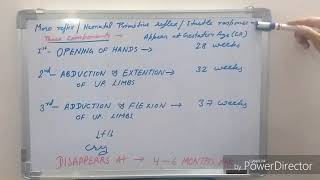 Moro reflex / Neonatal Primitive reflex / Startle response -
Three components - Appear at Gestation Age (GA)
1st - OPENING OF HANDS → 28 weeks
2nd - ABDUCTION & EXTENTION → 32 weeks
OF UP. LIMBS
3rd - ADDUCTION & FLEXION → 37 weeks
OF UP. LIMBS
CRY
DISAPPEARS AT → 4-6 MONTHS
by PowerDirector